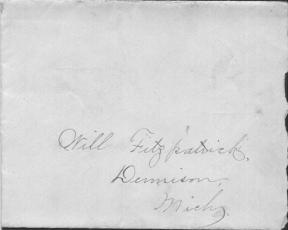 Will Fitzpatrick,
Dennison,
Mich,